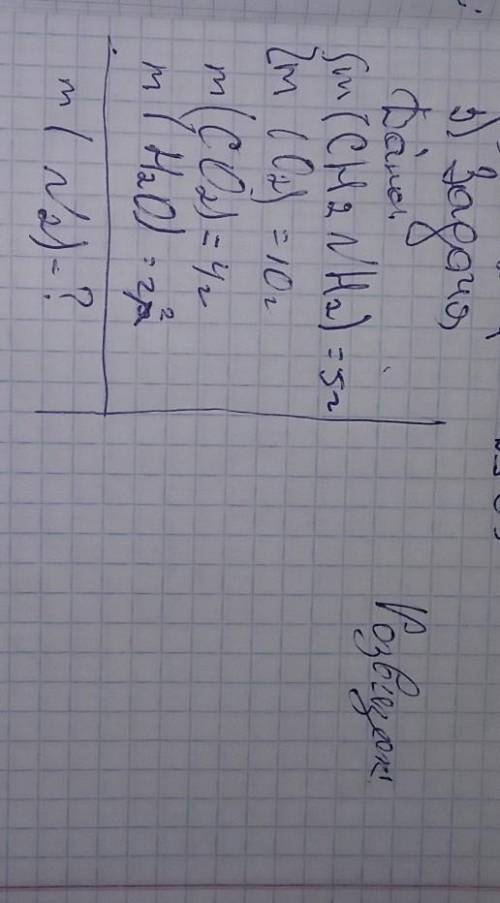 3) Задача
Дано:
m(CH2NH2) = 5г
m(O2) = 10г
m(CO2) = 4г
m(H2O) = 2г
m(N2) = ?